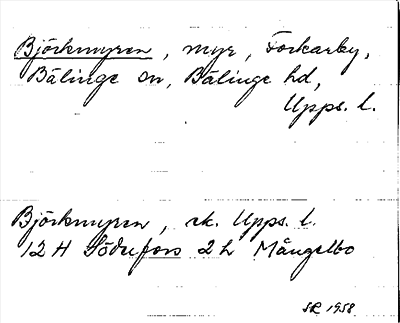 Björkmyren, myr, Forkarby,
Bälinge sn, Bälinge hd,
Upps. l.
Björkmyren, ek. Upps. l.
12 H Söderfors 2 h Mångelbo
SR 1958